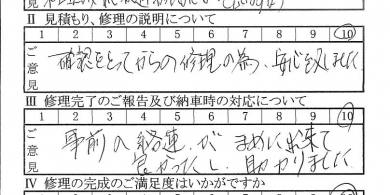 Ⅱ 見積もり、修理の説明について
1 2 3 4 5 6 7 8 9 10
ご意見
確認をとってからの修理の為、安心しました
Ⅲ 修理完了のご報告及び納車時の対応について
1 2 3 4 5 6 7 8 9 10
ご意見
事前の経連がまめに出来て
良かったし、助かりました
Ⅳ 修理の完成のご満足度はいかがですか